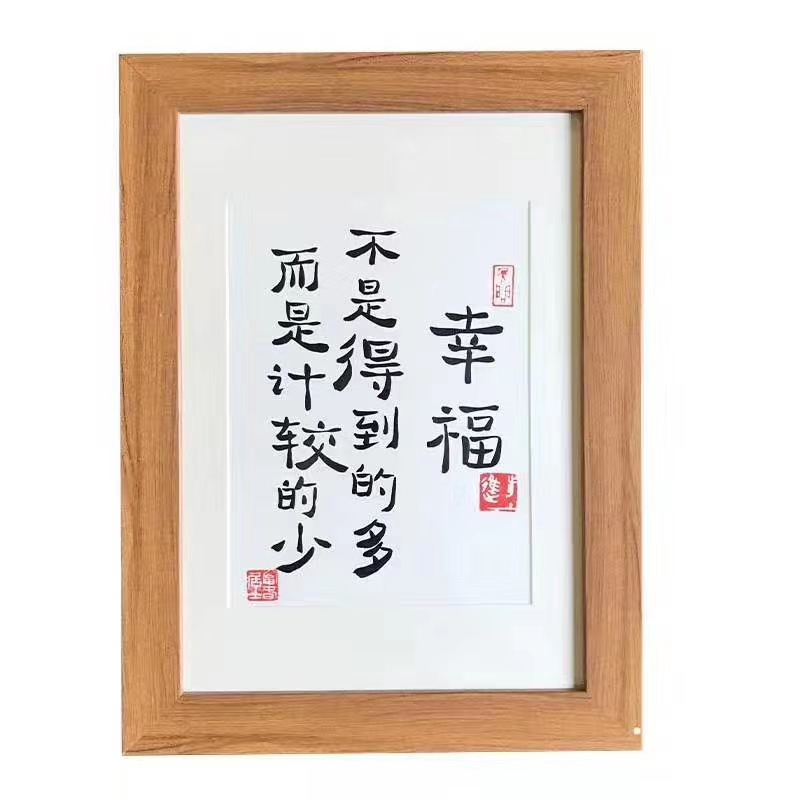 幸福
不是得到的多
而是计较的少